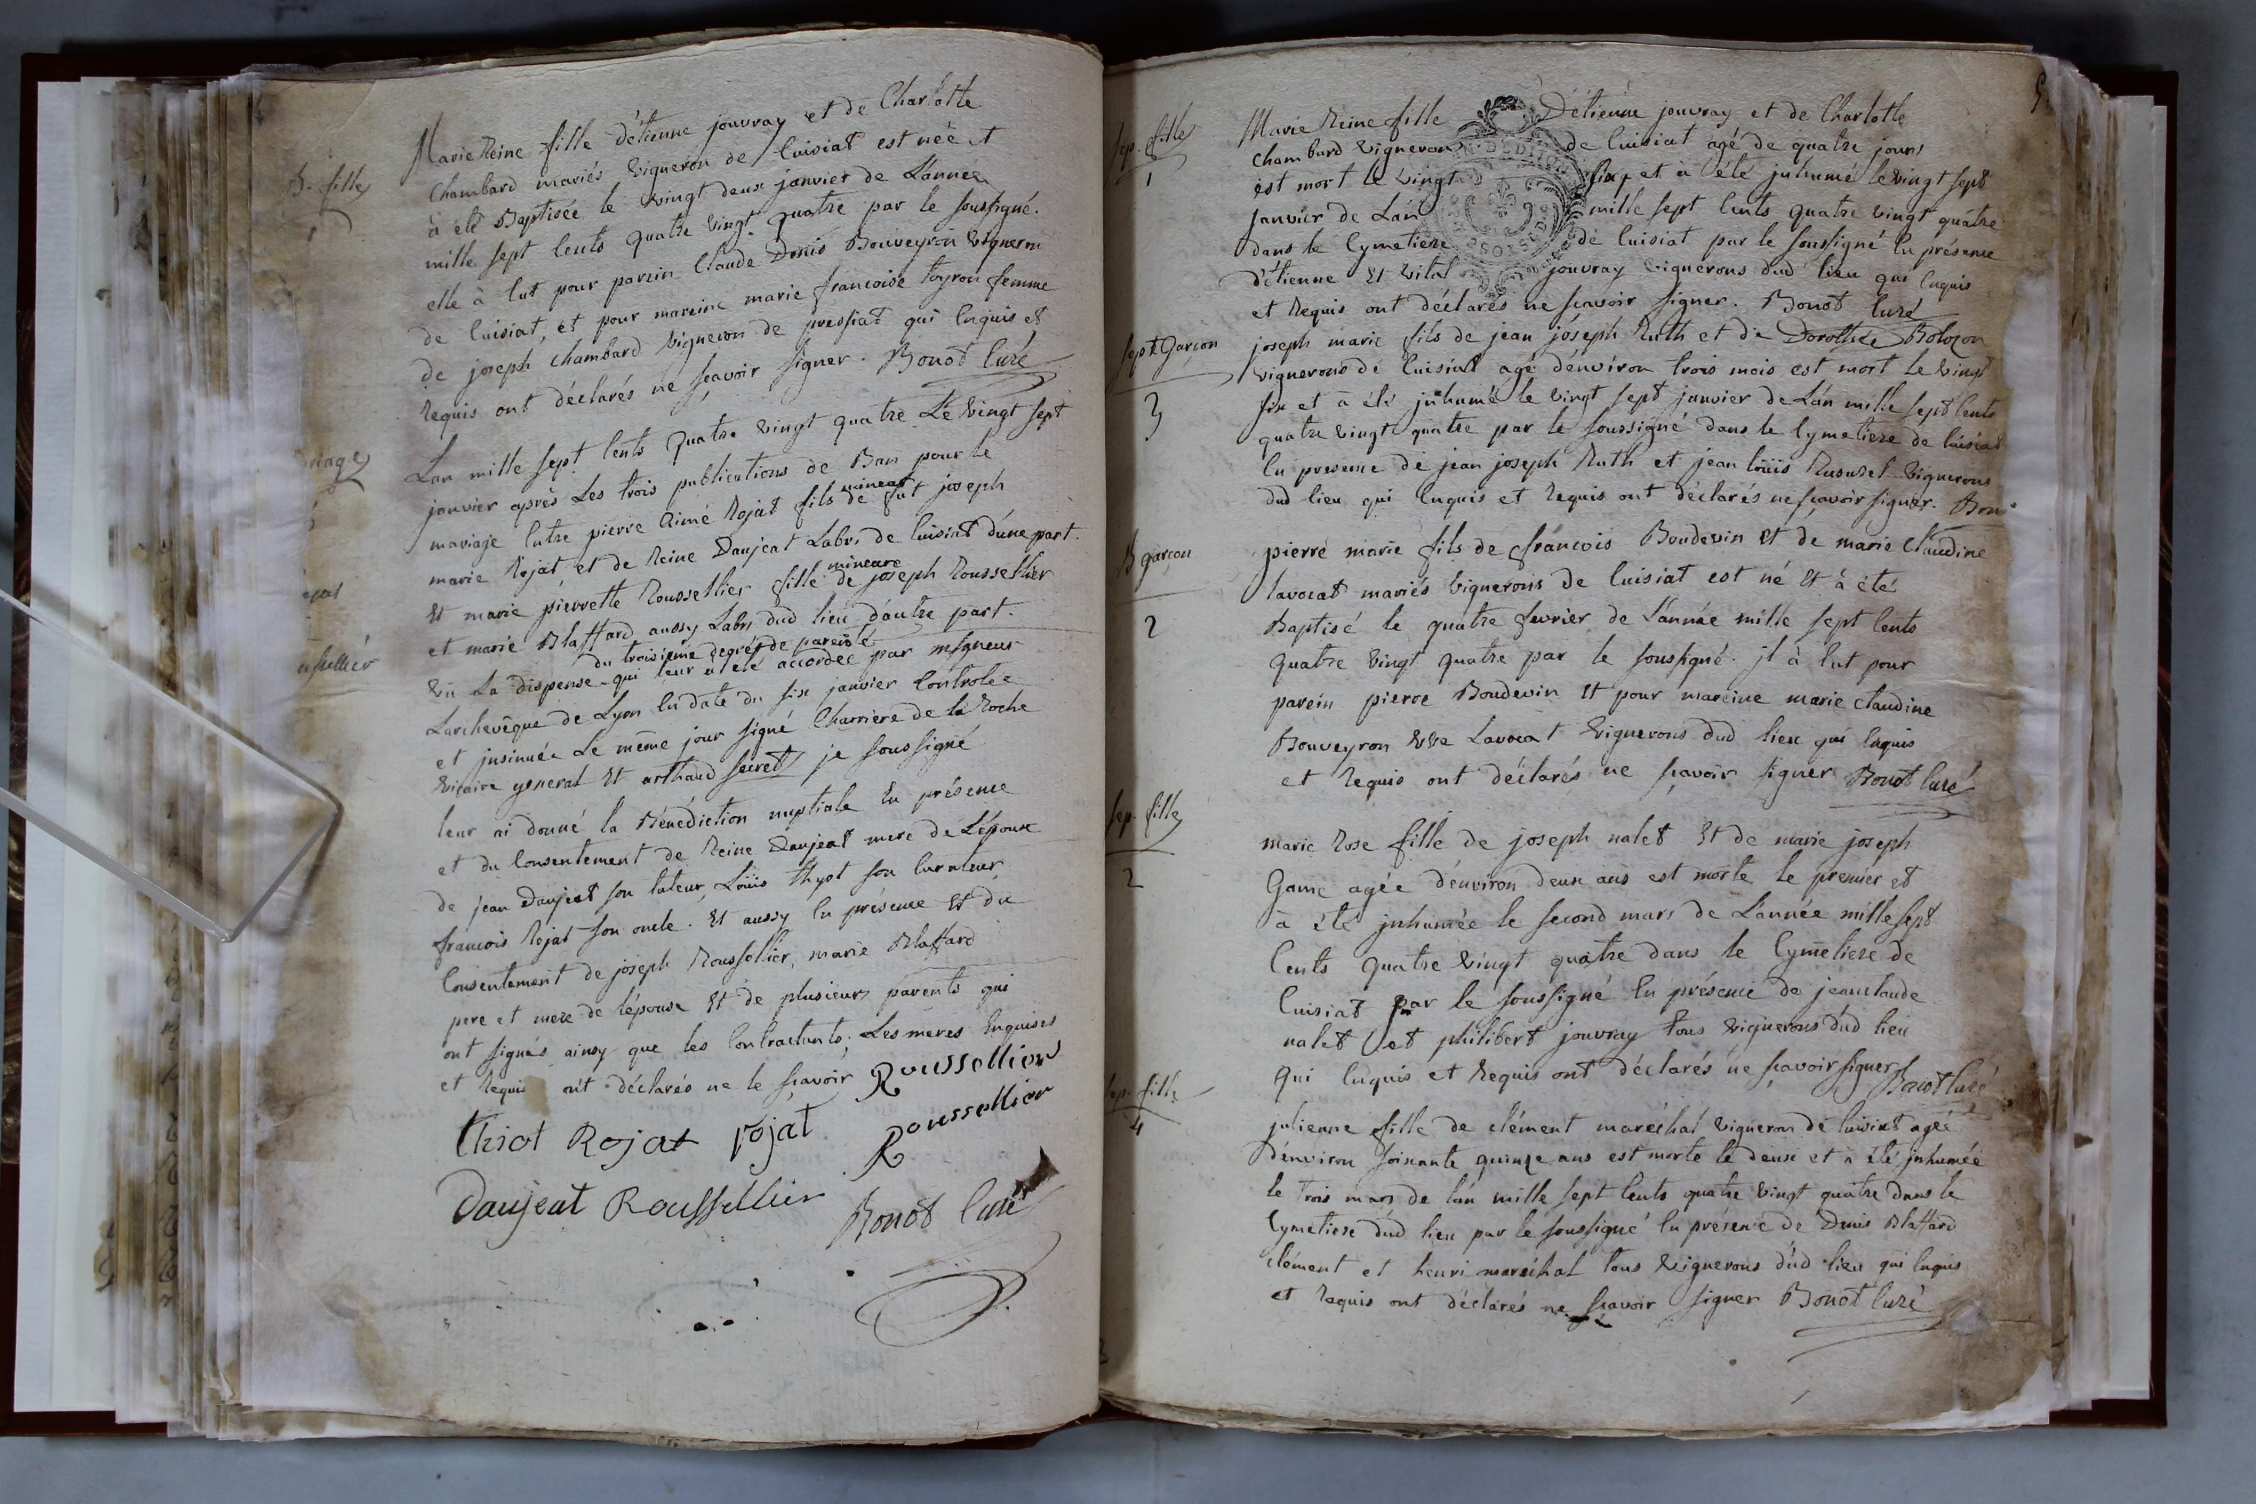 B. fille
1
Marie Reine fille d'étienne jouvray et de Charlotte
Chambard mariés vigneron de Cuisiat est née et
à été Baptisée le vingt deux janvier de L'année
mille sept Cents quatre vingt quatre par le soussigné.
elle à Eut pour parein Claude Denis Bouveyron vigneron
de Cuisiat, et pour mareine marie francoise Poyrou femme
de joseph Chambard vigneron de pressiat qui Enquis et
Requis ont déclarés ne sçavoir signer. Bonot Curé
riage
Lan mille sept Cents quatre vingt quatre Le vingt sept
janvier après Les trois publications de Ban pour le
mineur
mariage Entre pierre Aimé Rojat fils de fut joseph
marie Rojat et de Reine Daujeat Labrs de Cuisiat d'une part.
mineure
Et marie pierrette Roussellier fille de joseph Roussellier
et marie Blaffard aussy Labrs dud lieu d'autre part.
du troisieme degrés de parenté
vu La dispense qui leur a été accordée par msgneur
Larchevêque de Lyon En date du six janvier Controlée
et jnsinuée Le même jour signé Charriere de la Roche
vicaire general Et arthaud secret je soussigné
leur ai donné la Bénédiction nuptiale En présence
et du Consentement de Reine Daujeat mere de L'époux
de jean Daujeat son tuteur, Loüis thyot son Curateur,
francois Rojat son oncle. Et aussy En présence Et du
Consentement de joseph Roussellier, marie Blaffard
pere et mere de l'épouse Et de plusieurs parents qui
ont signés ainsy que les Contractants. Les meres Enquises
et Requis ont déclarés ne le sçavoir Roussellier
Thiot Rojat rojat Roussellier
Daujeat Roussellier
Bonot Curé
Sep. fille
1
Marie Reine fille D'étienne jouvray et de Charlotte
Chambard vigneron de Cuisiat agé de quatre jours
est mort le vingt six, et à été juhumé le vingt sept
janvier de Lan mille sept Cents quatre vingt quatre
dans le Cymetiere de Cuisiat par le soussigné En présence
d'étienne Et vital jouvray vignerons dud lieu qui Enquis
et Requis ont déclarés ne sçavoir signer. Bonot Curé
Sept Garçon
3
joseph marie fils de jean joseph Ruth et de Dorothée Bolozon
vignerons de Cuisiat agé d'environ trois mois est mort le vingt
six et à été jnhumé le vingt sept janvier de Lan mille sept Cents
quatre vingt quatre par le soussigné dans le Cymetiere de Cuisiat
En presence de jean joseph Ruth et jean loüis vignerons
dud lieu qui Enquis et Requis ont déclarés ne sçavoir signer. Bon
B garçon
2
pierre marie fils de francois Boudevin Et de marie Claudine
lavocat mariés vignerons de Cuisiat est né Et à été
Baptisé le quatre fevrier de L'année mille sept Cents
quatre vingt quatre par le soussigné. jl à Eut pour
parein pierre Boudevin Et pour mareine marie Claudine
Bouveyron vve Lavocat vignerons dud lieu qui Enquis
et Requis ont déclarés ne sçavoir signer Bonot Curé
Sep. fille
2
marie Rose fille de joseph nalet Et de marie joseph
Game agée d'environ deux ans est morte le premier et
à été jnhumée le second mars de L'année mille sept
Cents quatre vingt quatre dans le Cymetiere de
Cuisiat par le soussigné En présence de jeanclaude
nalet et philibert jouvray tous vignerons dud lieu
qui Enquis et Requis ont déclarés ne sçavoir signer Bonot Curé
Sep. fille
4
julienne fille de clément maréchal vigneron de Cuisiat agée
d'environ soixante quinze ans est morte le deux et à été jnhumée
le trois mars de lan mille sept Cents quatre vingt quatre dans le
Cymetiere dud lieu par le soussigné En présence de Denis Blaffard
clément et henri maréchal tous vignerons dud lieu qui Enquis
et Requis ont déclarés ne sçavoir signer Bonot Curé